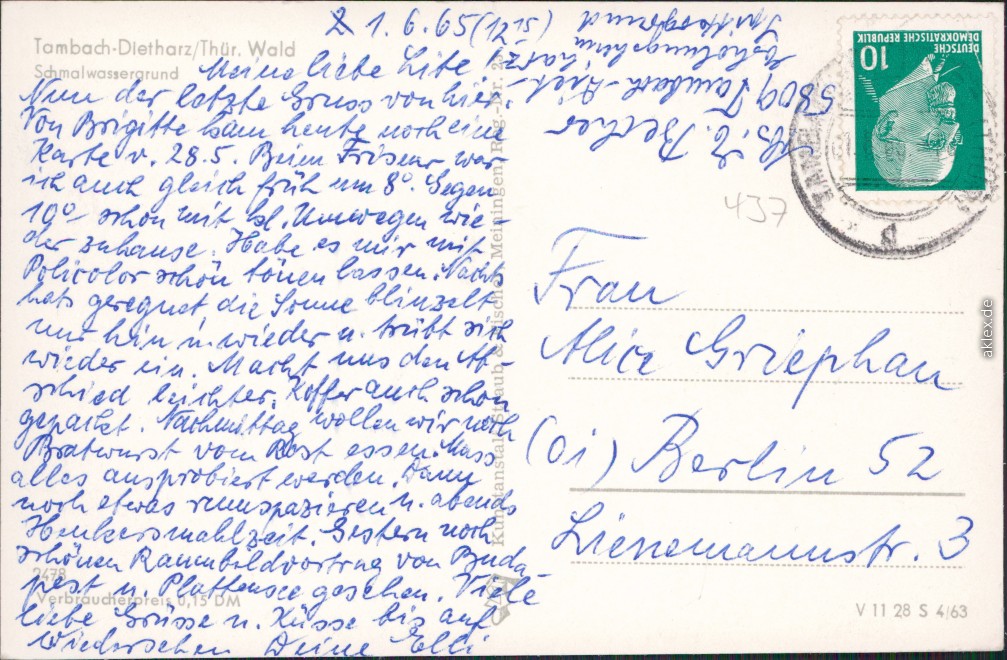 Tambach-Dietharz/Thür. Wald
Schmalwassergrund
1.6.65 (12 15)
Meine liebe
Nun der letzte Gruss von hier.
Von Brigitte kam heute noch eine
Karte v. 28.5. Beim Friseur war
ich auch gleich früh um 8°. Gegen
10° schon mit kl. Umwegen wie-
der zuhause. Habe es mir mit
Policolor schön tönen lassen. Nachts
hats geregnet, die Sonne blinzelt
nur hin u. wieder u. trübt sich
wieder ein. Macht uns den Ab-
schied leichter. Koffer auch schon
gepackt. Nachmittag wollen wir noch
Bratwurst vom Rost essen. Muss
alles ausprobiert werden. Dann
noch etwas rumspazieren u. abends
Henkersmahlzeit. Gestern noch
schönen Raumbildvortrag von Buda
pest u. Plattensee gesehen. Viele
liebe Grüsse u. Küsse bis auf
Wiedersehen Deine Elli
2478
Verbraucherpreis 0,15 DM
Kunstanstalt Straub & Fischer, Meiningen
Abs. E. Becher
5809 Tambach-Diet-
harz
DEUTSCHE
DEMOKRATISCHE REPUBLIK
10
437
Frau
Alice Griephan
(01) Berlin 52
Lienemannstr. 3
V 11 28 S 4/63
aklex.de